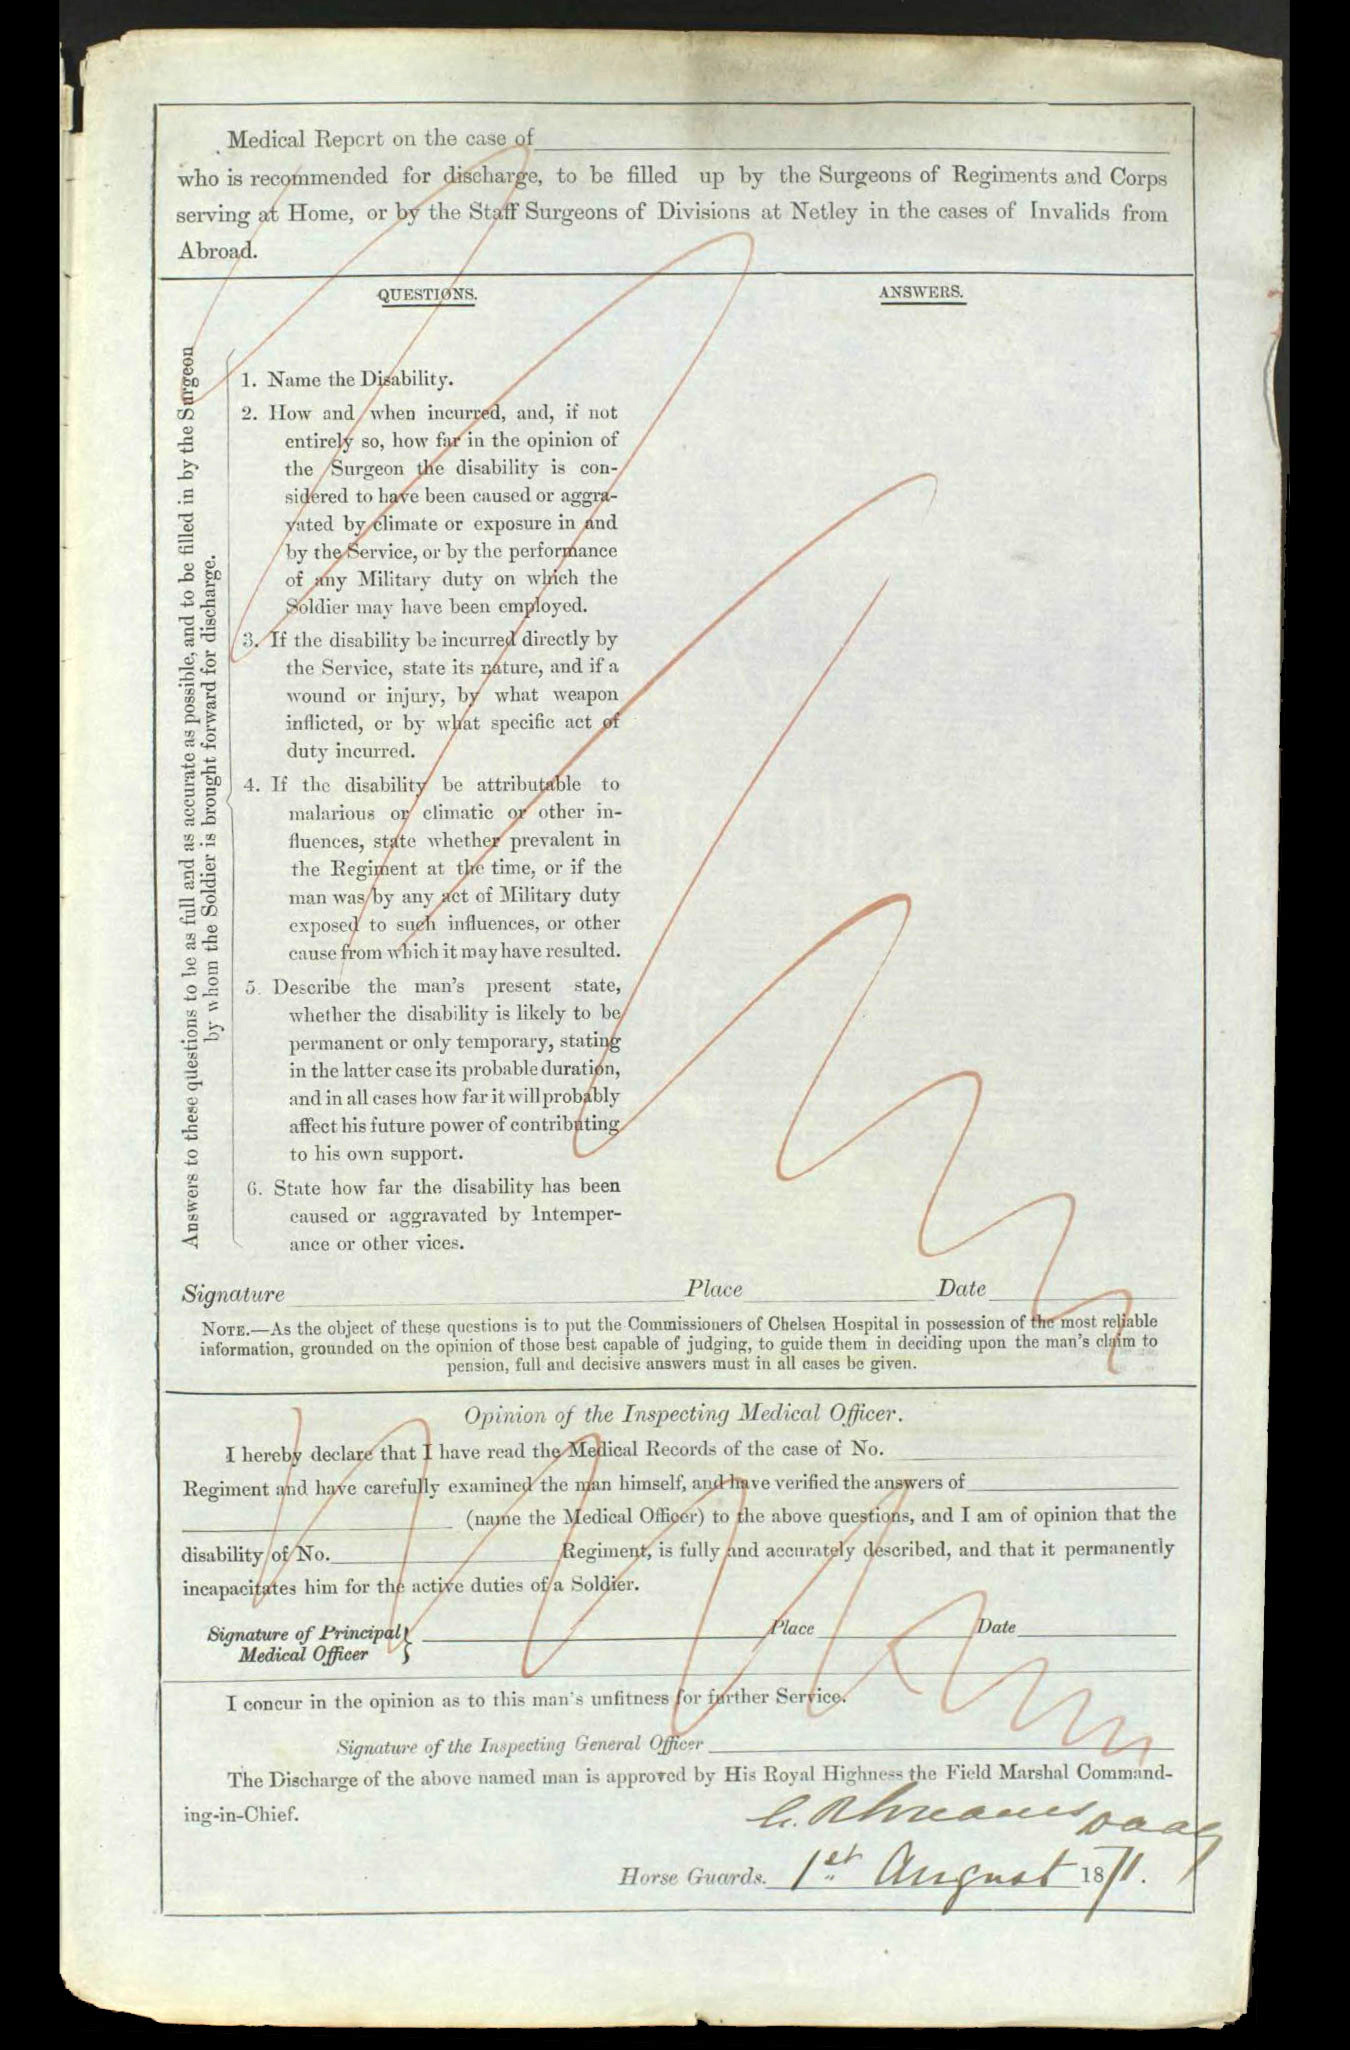 Medical Report on the case of
who is recommended for discharge, to be filled up by the Surgeons of Regiments and Corps
serving at Home, or by the Staff Surgeons of Divisions at Netley in the cases of Invalids from
Abroad.
QUESTIONS.
ANSWERS.
Answers to these questions to be as full and as accurate as possible, and to be filled in by the Surgeon
by whom the Soldier is brought forward for discharge.
1. Name the Disability.
2. How and when incurred, and, if not
entirely so, how far in the opinion of
the Surgeon the disability is con-
sidered to have been caused or aggra-
vated by climate or exposure in and
by the Service, or by the performance
of any Military duty on which the
Soldier may have been employed.
3. If the disability be incurred directly by
the Service, state its nature, and if a
wound or injury, by what weapon
inflicted, or by what specific act of
duty incurred.
4. If the disability be attributable to
malarious or climatic or other in-
fluences, state whether prevalent in
the Regiment at the time, or if the
man was by any act of Military duty
exposed to such influences, or other
cause from which it may have resulted.
5. Describe the man's present state,
whether the disability is likely to be
permanent or only temporary, stating
in the latter case its probable duration,
and in all cases how far it will probably
affect his future power of contributing
to his own support.
6. State how far the disability has been
caused or aggravated by Intemper-
ance or other vices.
Signature Place Date
NOTE.—As the object of these questions is to put the Commissioners of Chelsea Hospital in possession of the most reliable
information, grounded on the opinion of those best capable of judging, to guide them in deciding upon the man's claim to
pension, full and decisive answers must in all cases be given.
Opinion of the Inspecting Medical Officer.
I hereby declare that I have read the Medical Records of the case of No.
Regiment and have carefully examined the man himself, and have verified the answers of
(name the Medical Officer) to the above questions, and I am of opinion that the
disability of No. Regiment, is fully and accurately described, and that it permanently
incapacitates him for the active duties of a Soldier.
Signature of Principal } Place Date
Medical Officer
I concur in the opinion as to this man's unfitness for further Service.
Signature of the Inspecting General Officer
The Discharge of the above named man is approved by His Royal Highness the Field Marshal Command-
ing-in-Chief.
DAAG
Horse Guards. 1st August 1871.